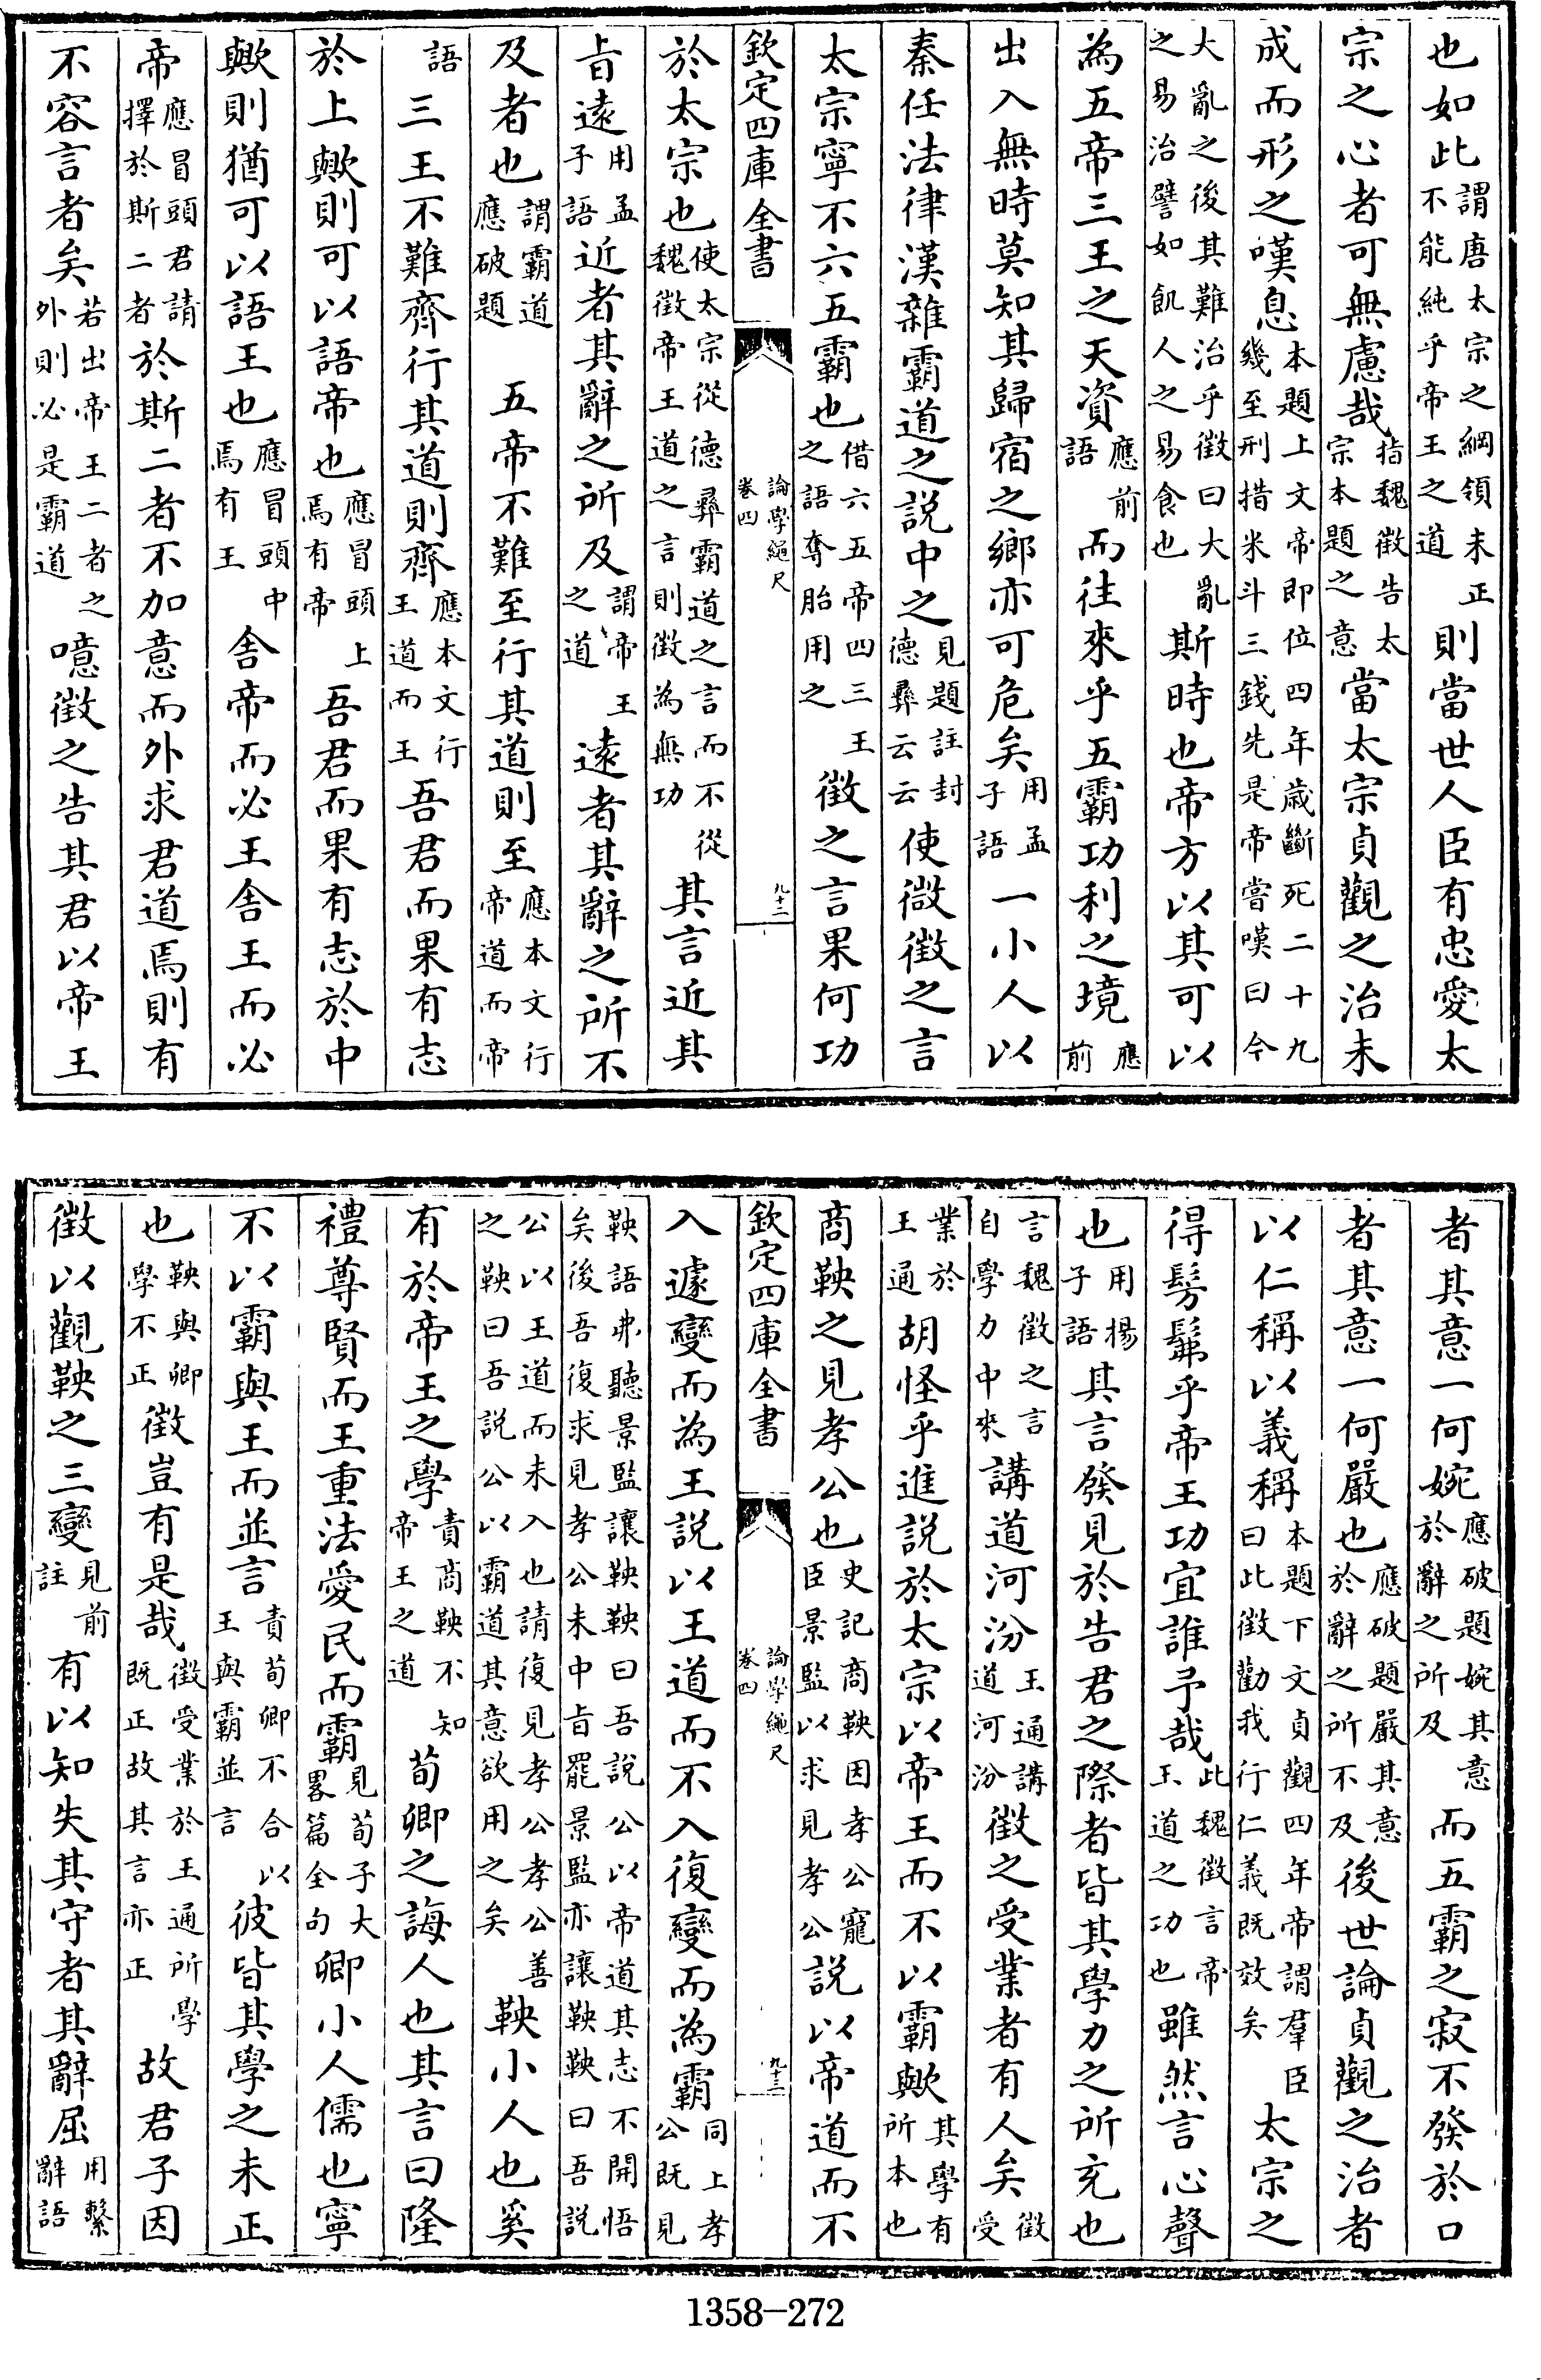 也如此謂唐太宗之綱領未正不能純乎帝王之道則當世人臣有忠愛太
宗之心者可無慮哉指魏徵告太宗本題之意當太宗貞觀之治未
成而形之嘆息本題上文帝即位四年歲斷死二十九幾至刑措米斗三錢先是帝嘗嘆曰今
大亂之後其難治乎徵曰大亂之易治譬如飢人之易食也斯時也帝方以其可以
為五帝三王之天資應前語而往來乎五霸功利之境應前
出入無時莫知其歸宿之鄉亦可危矣用孟子語一小人以
秦任法律漢雜霸道之説中之見題註封德彞云云使微徵之言
太宗寧不六五霸也借六五帝四三王之語奪胎用之徵之言果何功
欽定四庫全書 論學繩尺 卷四 九十二
於太宗也使太宗從德彞霸道之言而不從魏徵帝王道之言則徵為無功其言近其
旨遠用孟子語近者其辭之所及謂帝王之道遠者其辭之所不
及者也謂霸道應破題 五帝不難至行其道則至應本文行帝道而帝
語三王不難齊行其道則齊應本文行王道而王吾君而果有志
於上歟則可以語帝也應冒頭上焉有帝吾君而果有志於中
歟則猶可以語王也應冒頭中焉有王舍帝而必王舍王而必
帝應冒頭君請擇於斯二者於斯二者不加意而外求君道焉則有
不容言者矣若出帝王二者之外則必是霸道噫徵之告其君以帝王
者其意一何婉應破題婉其意於辭之所及而五霸之寂不發於口
者其意一何嚴也應破題嚴其意於辭之所不及後世論貞觀之治者
以仁稱以義稱本題下文貞觀四年帝謂羣臣曰此徵勸我行仁義既效矣太宗之
得髣髴乎帝王功宜誰予哉此魏徵言帝王道之功也雖然言心聲
也用揚子語其言發見於告君之際者皆其學力之所充也
言魏徵之言自學力中來講道河汾王通講道河汾徵之受業者有人矣徵受
業於王通胡怪乎進説於太宗以帝王而不以霸歟其學有所本也
商鞅之見孝公也史記商鞅因孝公寵臣景監以求見孝公説以帝道而不
欽定四庫全書 論學繩尺 卷四 九十三
入遽變而為王説以王道而不入復變而為霸同上孝公既見
鞅語弗聽景監讓鞅鞅曰吾説公以帝道其志不開悟矣後吾復求見孝公未中旨罷景監亦讓鞅鞅曰吾説
公以王道而未入也請復見孝公孝公善之鞅曰吾説公以霸道其意欲用之矣鞅小人也奚
有於帝王之學責商鞅不知帝王之道荀卿之誨人也其言曰隆
禮尊賢而王重法愛民而霸見荀子大畧篇全句卿小人儒也寧
不以霸與王而並言責荀卿不合以王與霸並言彼皆其學之未正
也鞅與卿學不正徵豈有是哉徵受業於王通所學既正故其言亦正故君子因
徵以觀鞅之三變見前註有以知失其守者其辭屈用繫辭語
1358-272